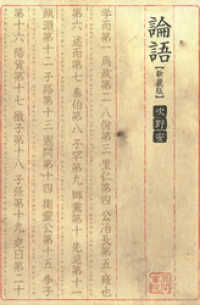 論語
【新装版】
吹野安
学而第一 為政第二 八佾第三 里仁第四 公冶長第五 雍也
第六 述而第七 泰伯第八 子罕第九 郷黨第十 先進第十一
顔淵第十二 子路第十三 憲問第十四 衛靈公第十五 季子
第十六 陽貨第十七 微子第十八 子張第十九 堯曰第二十